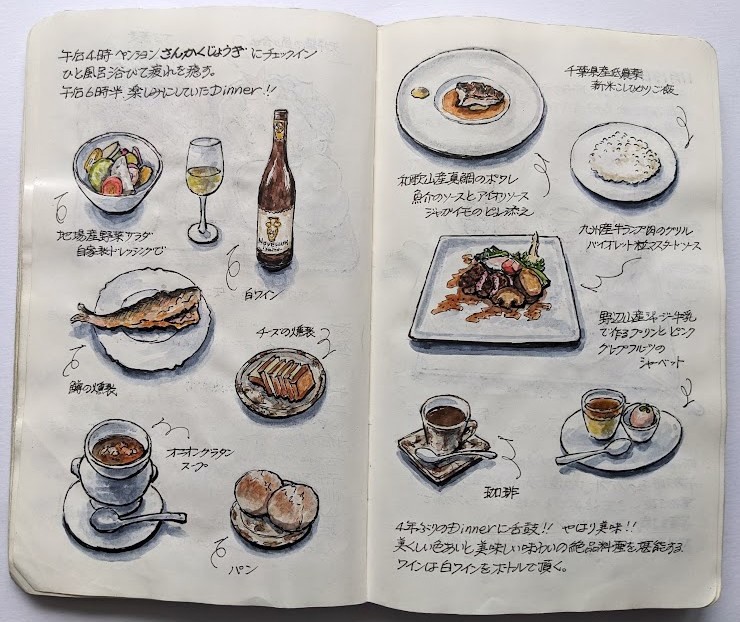 午后4時 ペンション さんかくじょうぎ にチェックイン
ひと風呂浴びて疲れを癒す。
午后6時半、楽しみにしていたDinner!!
地場産野菜サラダ
自家製ドレッシングで
白ワイン
鱒の燻製
チーズの燻製
オニオングラタン
スープ
パン
千葉県産低農薬
新米こしひかりご飯
和歌山産真鯛のポワレ
魚介のソースとアイオリソース
ジャガイモのピュレ添え
九州産牛ランプ肉のグリル
バイオレット粒マスタードソース
野辺山産ジャージー牛乳
で作るプリンとピンク
グレプフルーツの
シャーベット
珈琲
4年ぶりのDinnerに舌鼓!! やはり美味!!
美しい色あいと美味しい味わいの絶品料理を堪能する。
ワインは白ワインをボトルで頂く。